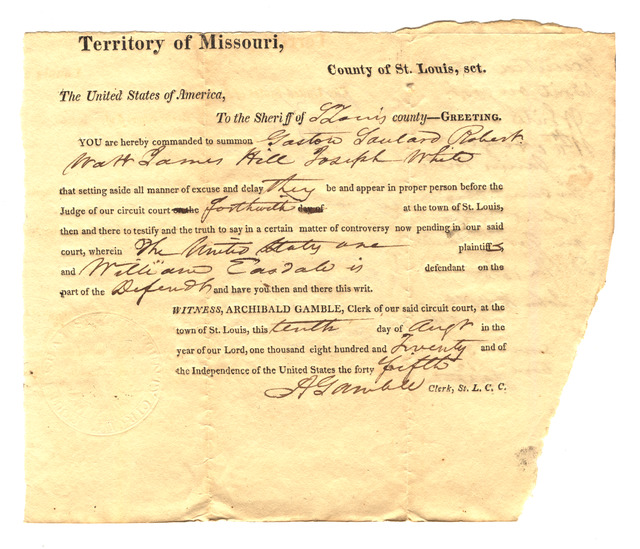 Territory of Missouri,
County of St. Louis, sct.
The United States of America,
To the Sheriff of St Louis county—GREETING.
YOU are hereby commanded to summon Gaston Soulard Robert
Watt James Hill Joseph White
that setting aside all manner of excuse and delay they be and appear in proper person before the
Judge of our circuit court on the forthwith day of at the town of St. Louis,
then and there to testify and the truth to say in a certain matter of controversy now pending in our said
court, wherein The United States are plaintiffs
and William Easdale is defendant on the
part of the Defendt and have you then and there this writ.
WITNESS, ARCHIBALD GAMBLE, Clerk of our said circuit court, at the
town of St. Louis, this tenth day of Augt in the
year of our Lord, one thousand eight hundred and Twenty and of
the Independence of the United States the forty fifth
A Gamble Clerk, St. L. C. C.